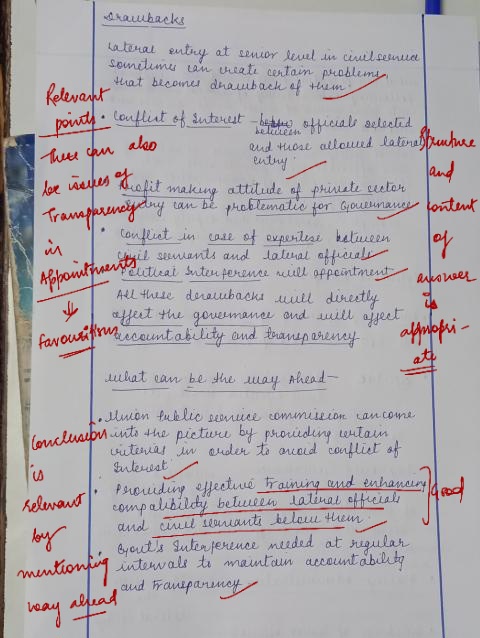 Drawbacks
Lateral entry at senior level in civil service
sometimes can create certain problems
that becomes drawback of them.
• Conflict of Interest - between officials selected
and those allowed lateral
entry.
Profit making attitude of private sector
entry can be problematic for Governance
• Conflict in case of expertise between
civil servants and lateral officials
Political Interference will appointment
All these drawbacks will directly
affect the governance and will affect
accountability and transparency
What can be the way Ahead -
• Union Public service commission can come
into the picture by providing certain
criterias in order to avoid conflict of
Interest
• Providing effective training and enhancing
compatibility between lateral officials
and civil servants below them.
• Govt's Interference needed at regular
intervals to maintain accountability
and Transparency
Relevant
points
There can also
be issues of
Transparency
in
Appointments
⇓
favouritism
Conclusion
is
relevant
by
mentioning
way ahead
Structure
and
content
of
answer
is
appropri-
ate
Good